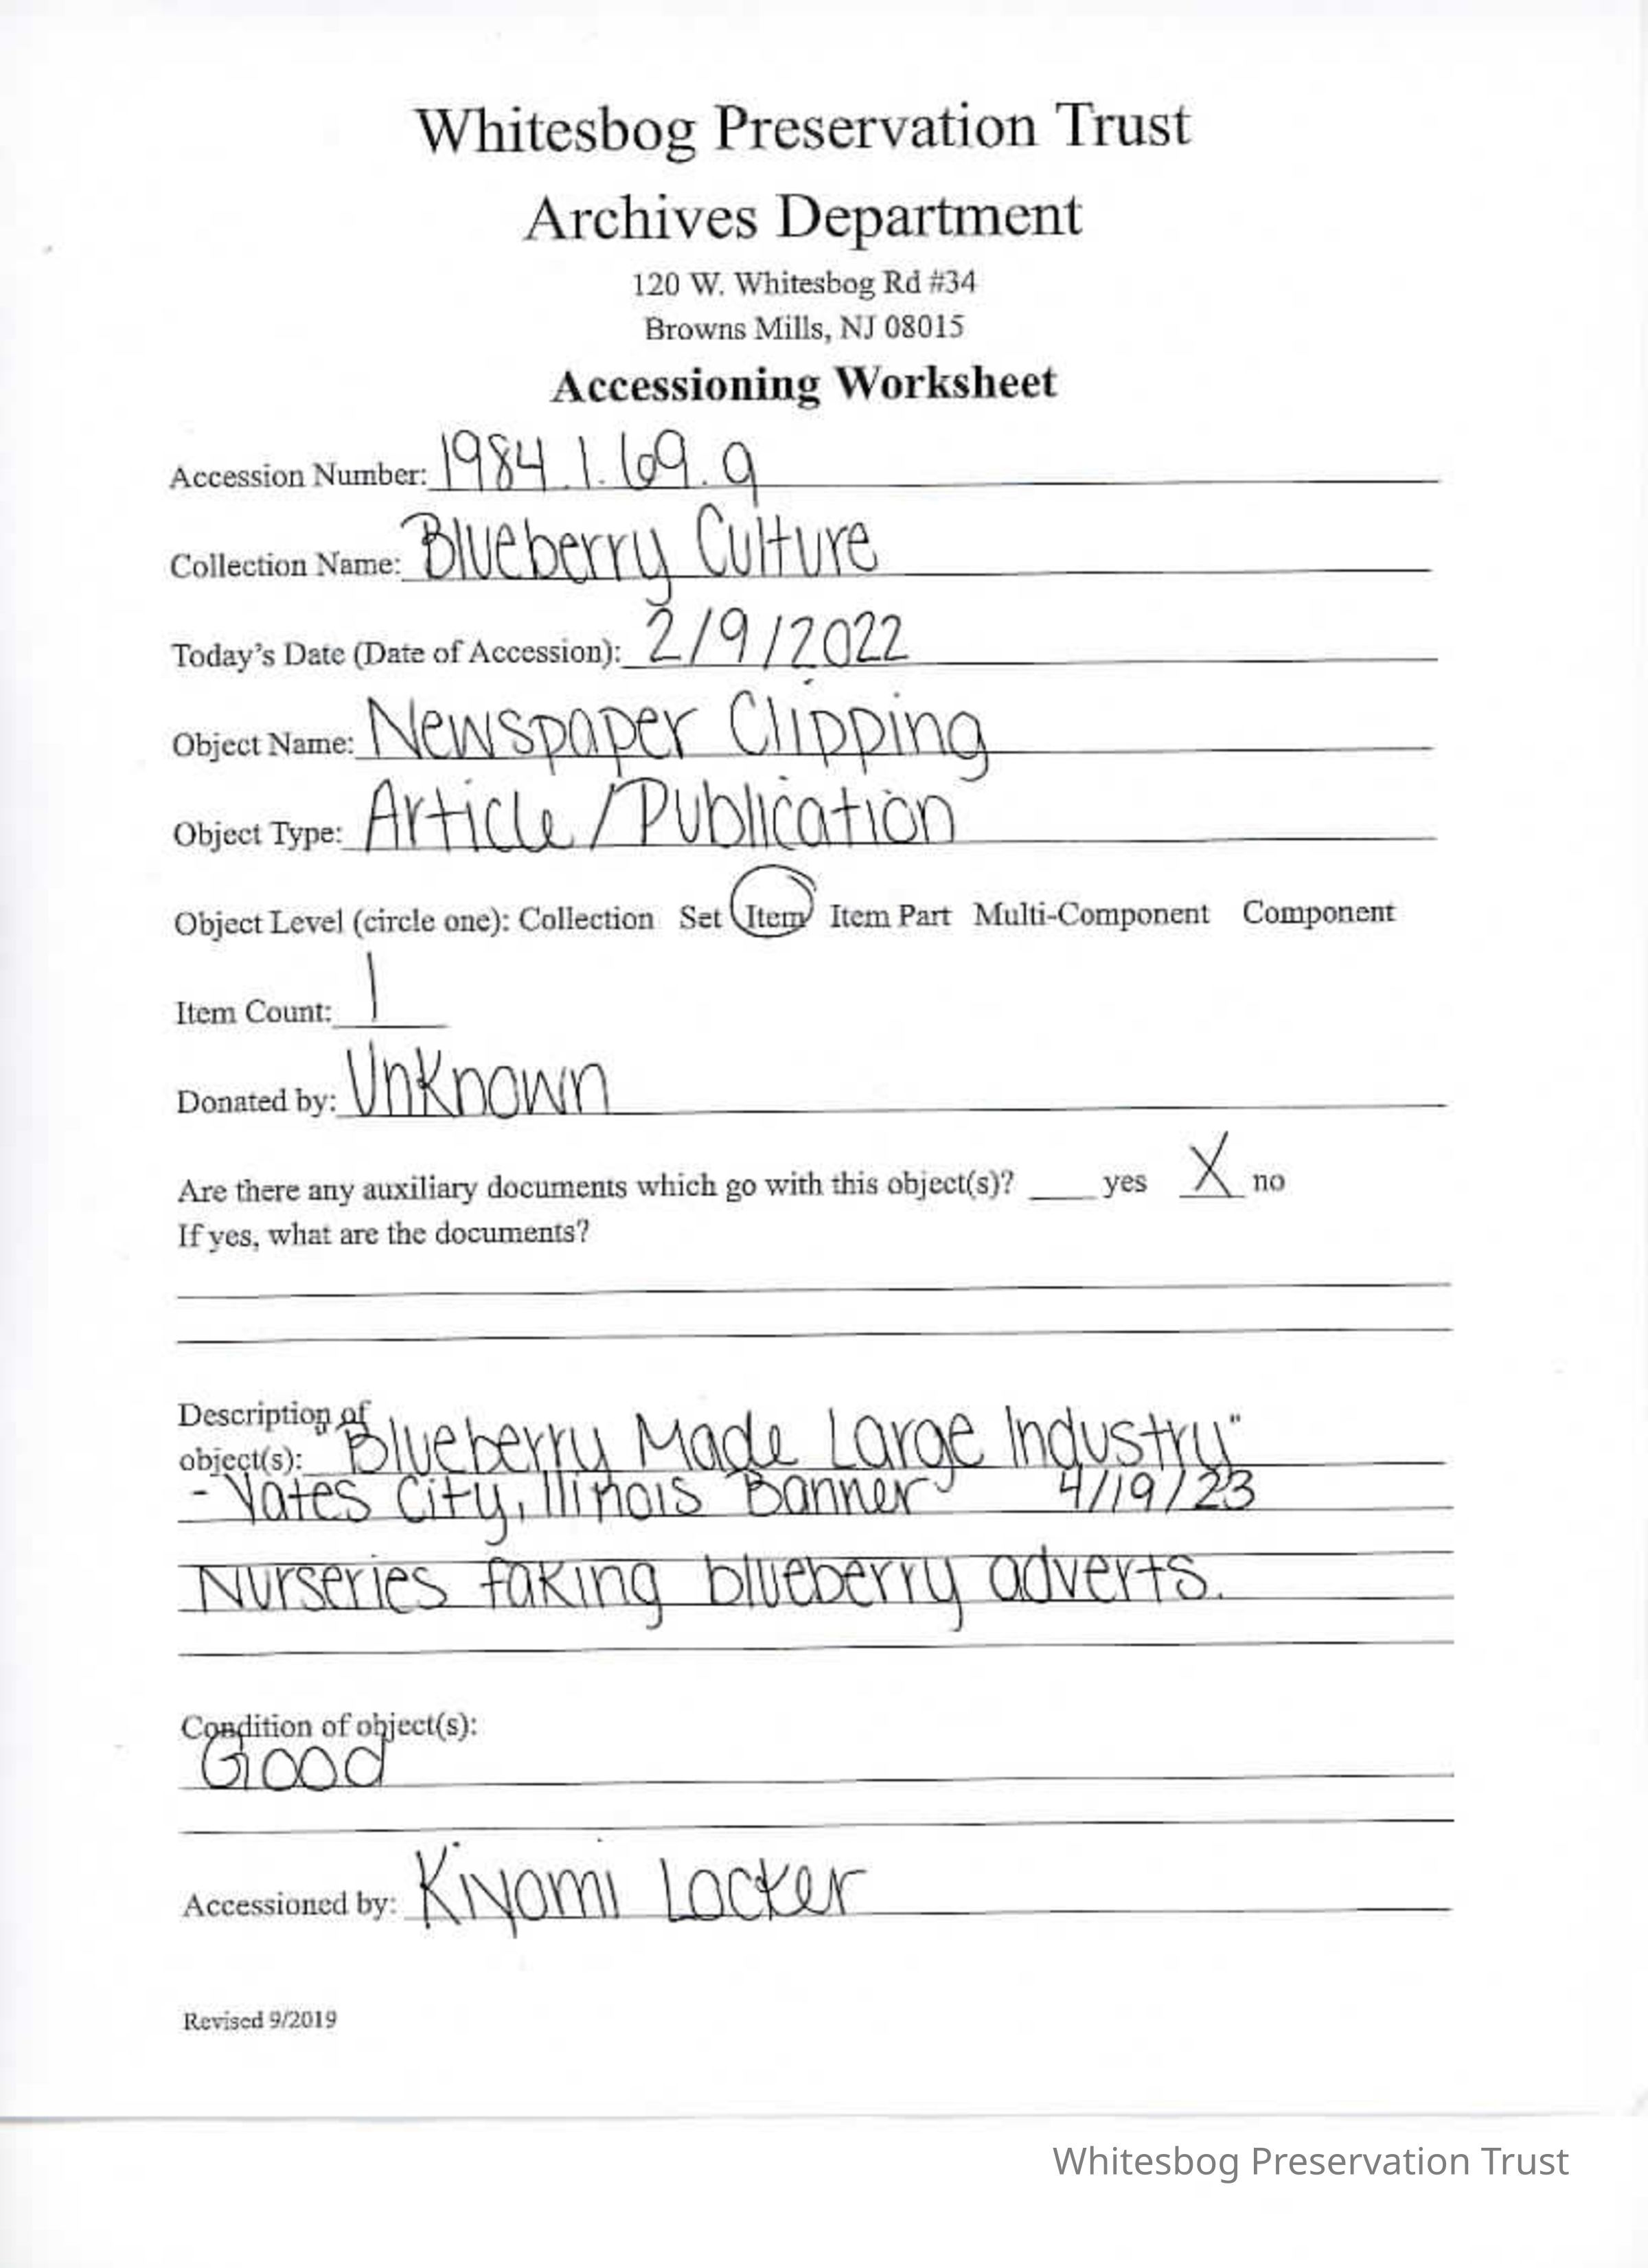 Whitesbog Preservation Trust
Archives Department
120 W. Whitesbog Rd #34
Browns Mills, NJ 08015
Accessioning Worksheet
Accession Number: 1984.1.69.9
Collection Name: Blueberry Culture
Today's Date (Date of Accession): 2/9/2022
Object Name: Newspaper Clipping
Object Type: Article/Publication
Object Level (circle one): Collection Set Item Item Part Multi-Component Component
Item Count: 1
Donated by: Unknown
Are there any auxiliary documents which go with this object(s)? ____ yes X no
If yes, what are the documents?
Description of
object(s): "Blueberry Made Large Industry"
- Yates City, Illinois Banner 4/19/23
Nurseries faking blueberry adverts.
Condition of object(s):
Good
Accessioned by: Kiyomi Locker
Revised 9/2019
Whitesbog Preservation Trust